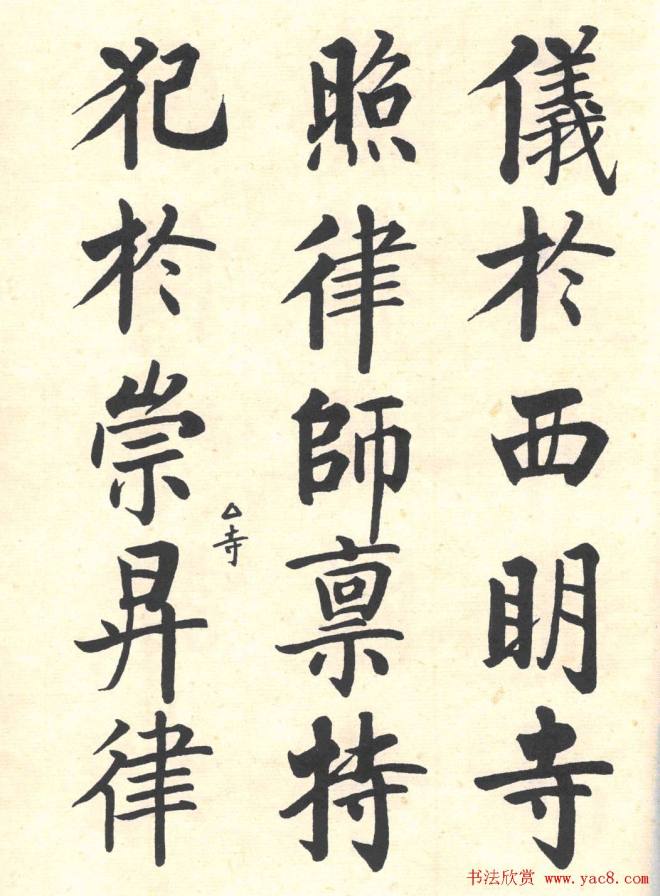 儀於西眀寺
照律師禀持
犯於崇昇律
△寺
书法欣赏 www.yac8.com